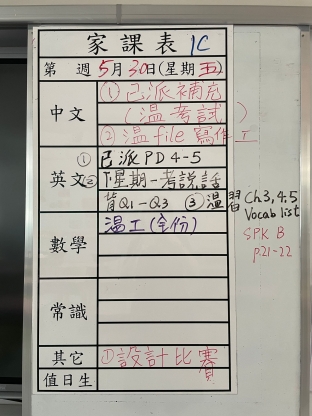 家課表 1C
第 週 5月30日(星期五)
中文
①已派補充
(溫考試)
②溫file寫作工
英文
①已派PD4-5
②下星期一考説話
背Q1-Q3 ③溫習 Ch.3,4,5
Vocab list
SPK B
p.21-22
數學
溫工(全份)
常識
其它
①設計比賽
值日生